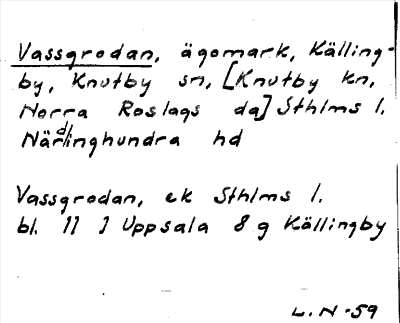 Vassgrodan, ägomark, Källing-
by, Knutby sn, [Knutby kn,
Norra Roslags da] Sthlms l.
Närdinghundra hd
Vassgrodan, ek Sthlms l.
bl. 11 I Uppsala 8 g Källingby
L.N-59